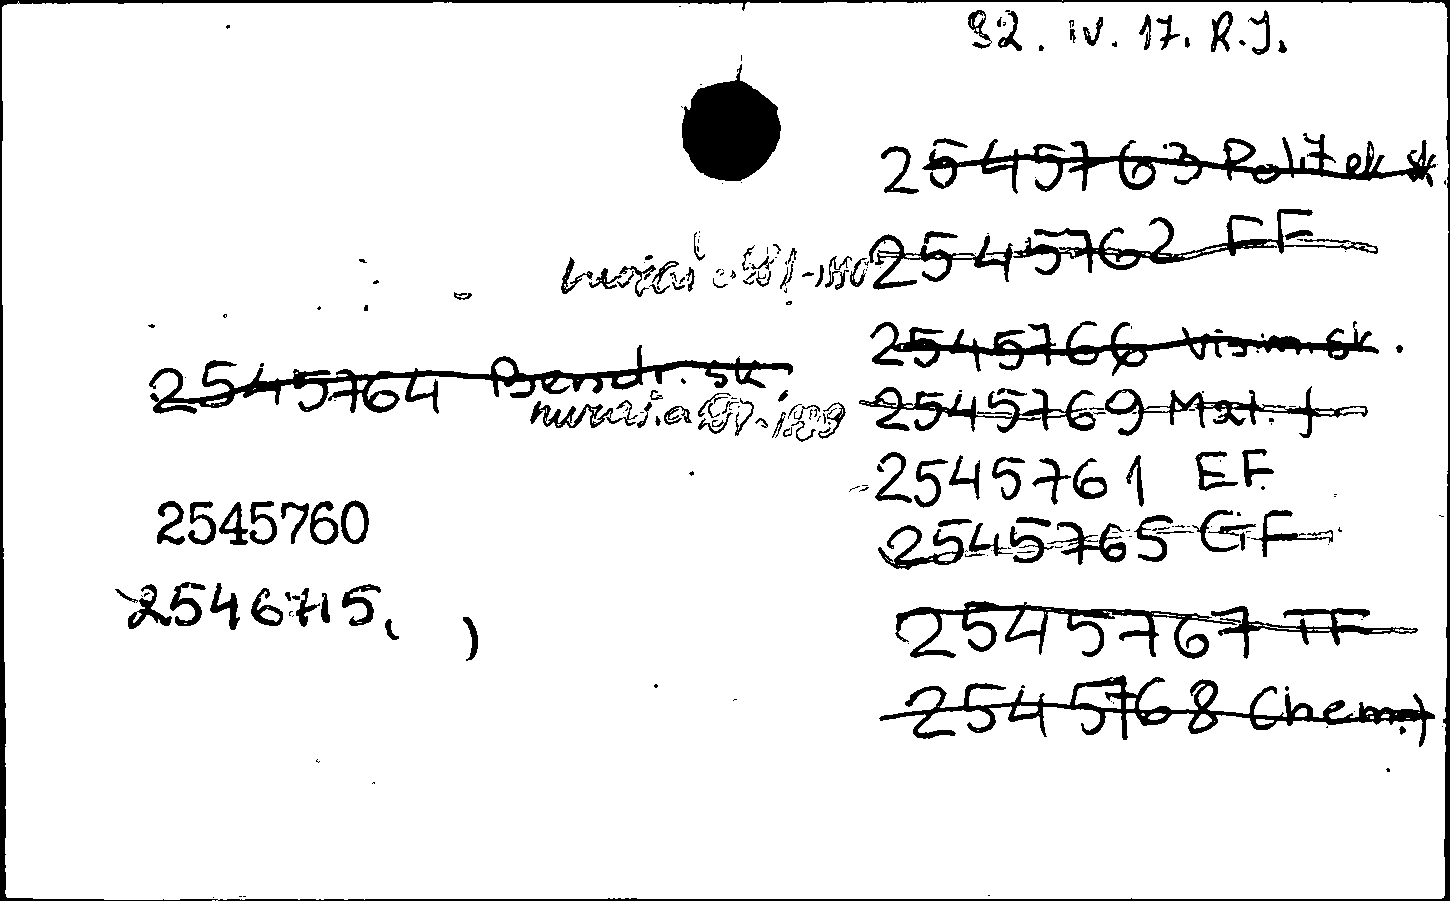 92. IV. 17. R.J.
2545763 Polit ek sk.
2545762 FF
2545766 Visuom. sk.
2545764 Bendr. sk.
2545769 Mat. f
2545761 EF
2545760
2545765 GF
2546715
2545767 TF
2545768 Chem. f